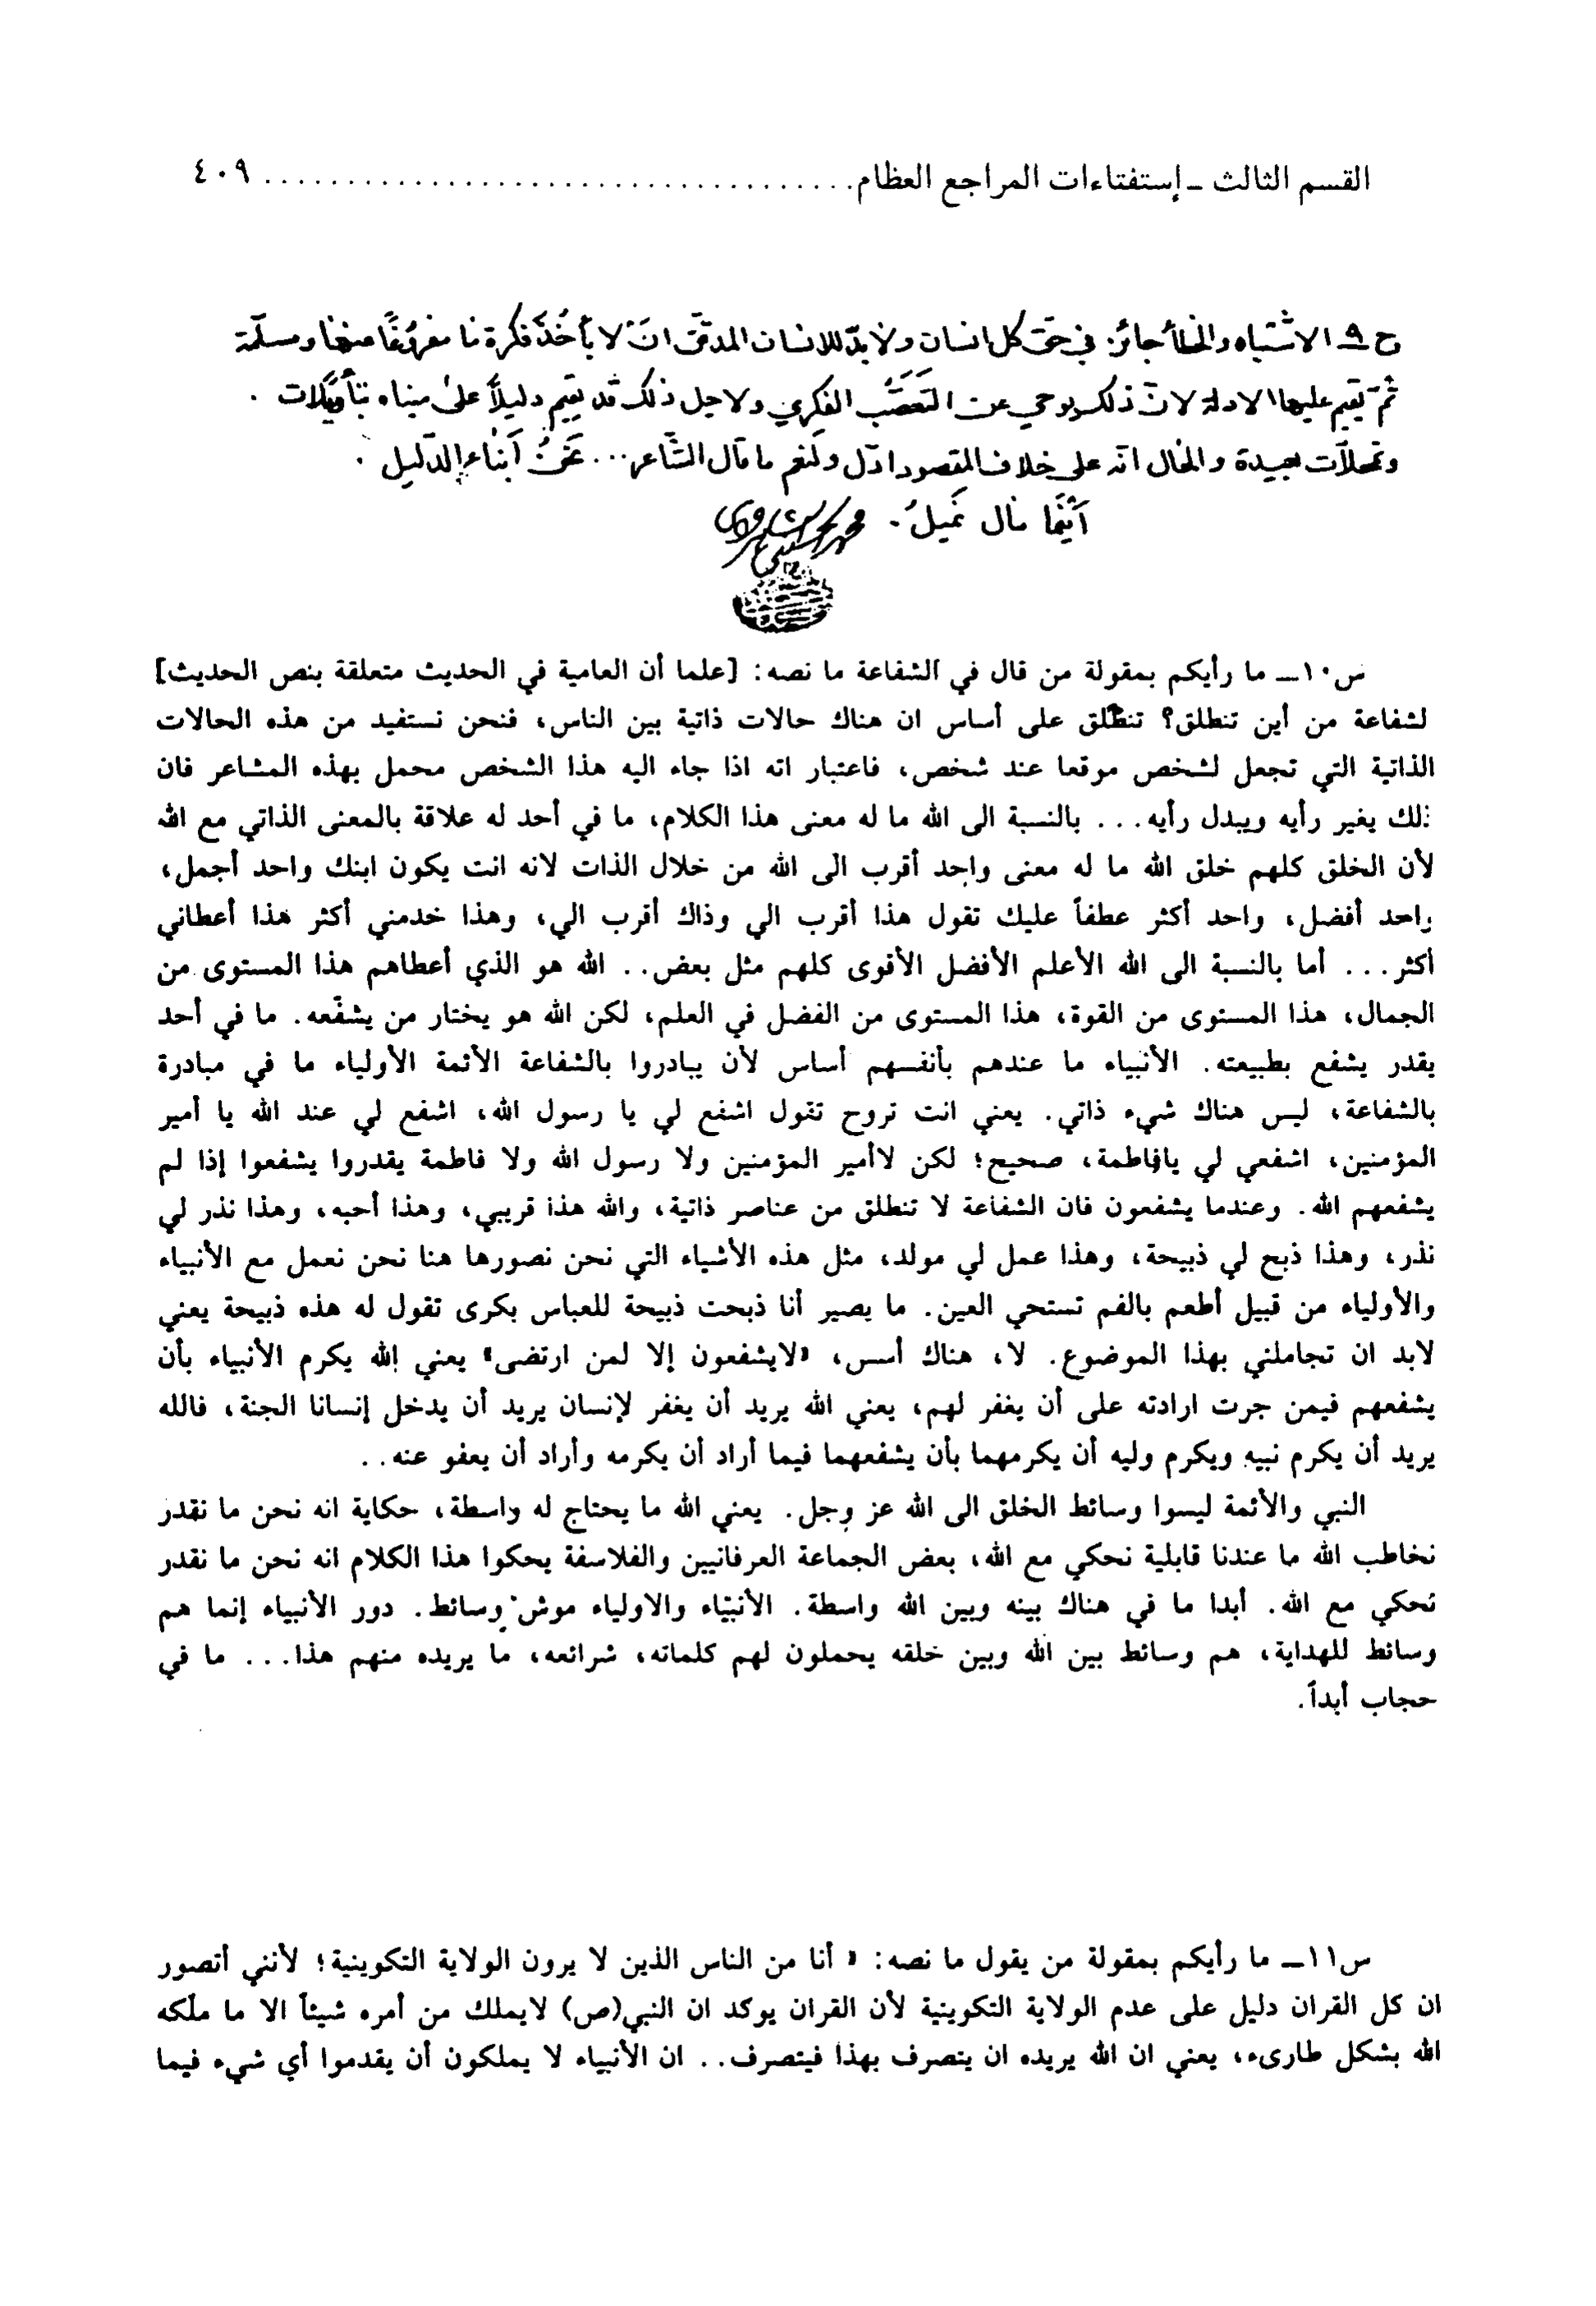 القسم الثالث ـ إستفتاءات المراجع العظام .................................... ٤٠٩
ج ٩ـ الاشتباه والخطأ جائز في حق كل انسان ولا بدّ للانسان المدقّق ان لا يأخُذَ فكرة مّا مفروغاً منها ومسلّمة
ثمّ يقيم عليها الادلة لانّ ذلك يوحي عن التَعَصُّب الفكري ولاجل ذلك قد يقيم دليلاً على مبناه بتأويلات
وتمحلاّت بعيدة والحال انّه على خلاف المقصود ادّل ولنعم ما قال الشّاعر... نحنُ أبناء الدّليل .
أينما مال نميلُ .
س١٠ـ ما رأيكم بمقولة من قال في الشفاعة ما نصه: [علما أن العامية في الحديث متعلقة بنص الحديث]
لشفاعة من أين تنطلق؟ تنطلق على أساس ان هناك حالات ذاتية بين الناس، فنحن نستفيد من هذه الحالات
الذاتية التي تجعل لشخص موقعا عند شخص، فاعتبار انه اذا جاء اليه هذا الشخص محمل بهذه المشاعر فان
ذلك يغير رأيه ويبدل رأيه... بالنسبة الى الله ما له معنى هذا الكلام، ما في أحد له علاقة بالمعنى الذاتي مع الله
لأن الخلق كلهم خلق الله ما له معنى واحد أقرب الى الله من خلال الذات لانه انت يكون ابنك واحد أجمل،
واحد أفضل، واحد أكثر عطفاً عليك تقول هذا أقرب الي وذاك أقرب الي، وهذا خدمني أكثر هذا أعطاني
أكثر... أما بالنسبة الى الله الأعلم الأفضل الأقوى كلهم مثل بعض.. الله هو الذي أعطاهم هذا المستوى من
الجمال، هذا المستوى من القوة، هذا المستوى من الفضل في العلم، لكن الله هو يختار من يشفّعه. ما في أحد
يقدر يشفع بطبيعته. الأنبياء ما عندهم بأنفسهم أساس لأن يبادروا بالشفاعة الأئمة الأولياء ما في مبادرة
بالشفاعة، ليس هناك شيء ذاتي. يعني انت تروح تقول اشفع لي يا رسول الله، اشفع لي عند الله يا أمير
المؤمنين، اشفعي لي يافاطمة، صحيح؛ لكن لاأمير المؤمنين ولا رسول الله ولا فاطمة يقدروا يشفعوا إذا لم
يشفعهم الله. وعندما يشفعون فان الشفاعة لا تنطلق من عناصر ذاتية، والله هذا قريبي، وهذا أحبه، وهذا نذر لي
نذر، وهذا ذبح لي ذبيحة، وهذا عمل لي مولد، مثل هذه الأشياء التي نحن نصورها هنا نحن نعمل مع الأنبياء
والأولياء من قبيل أطعم بالفم تستحي العين. ما يصير أنا ذبحت ذبيحة للعباس بكرى تقول له هذه ذبيحة يعني
لابد ان تجاملني بهذا الموضوع. لا، هناك أسس، «لايشفعون إلا لمن ارتضى» يعني الله يكرم الأنبياء بأن
يشفعهم فيمن جرت ارادته على أن يغفر لهم، يعني الله يريد أن يغفر لإنسان يريد أن يدخل إنسانا الجنة، فالله
يريد أن يكرم نبيه ويكرم وليه أن يكرمهما بأن يشفعهما فيما أراد أن يكرمه وأراد أن يعفو عنه..
النبي والأئمة ليسوا وسائط الخلق الى الله عز وجل. يعني الله ما يحتاج له واسطة، حكاية انه نحن ما نقدر
نخاطب الله ما عندنا قابلية نحكي مع الله، بعض الجماعة العرفانيين والفلاسفة يحكوا هذا الكلام انه نحن ما نقدر
نحكي مع الله. أبدا ما في هناك بينه وبين الله واسطة. الأنبياء والاولياء موش وسائط. دور الأنبياء إنما هم
وسائط للهداية، هم وسائط بين الله وبين خلقه يحملون لهم كلماته، شرائعه، ما يريده منهم هذا... ما في
حجاب أبداً.
س١١ـ ما رأيكم بمقولة من يقول ما نصه: « أنا من الناس الذين لا يرون الولاية التكوينية؛ لأنني أتصور
ان كل القران دليل على عدم الولاية التكوينية لأن القران يوكد ان النبي(ص) لايملك من أمره شيئاً الا ما ملّكه
الله بشكل طارىء، يعني ان الله يريده ان يتصرف بهذا فيتصرف.. ان الأنبياء لا يملكون أن يقدموا أي شيء فيما